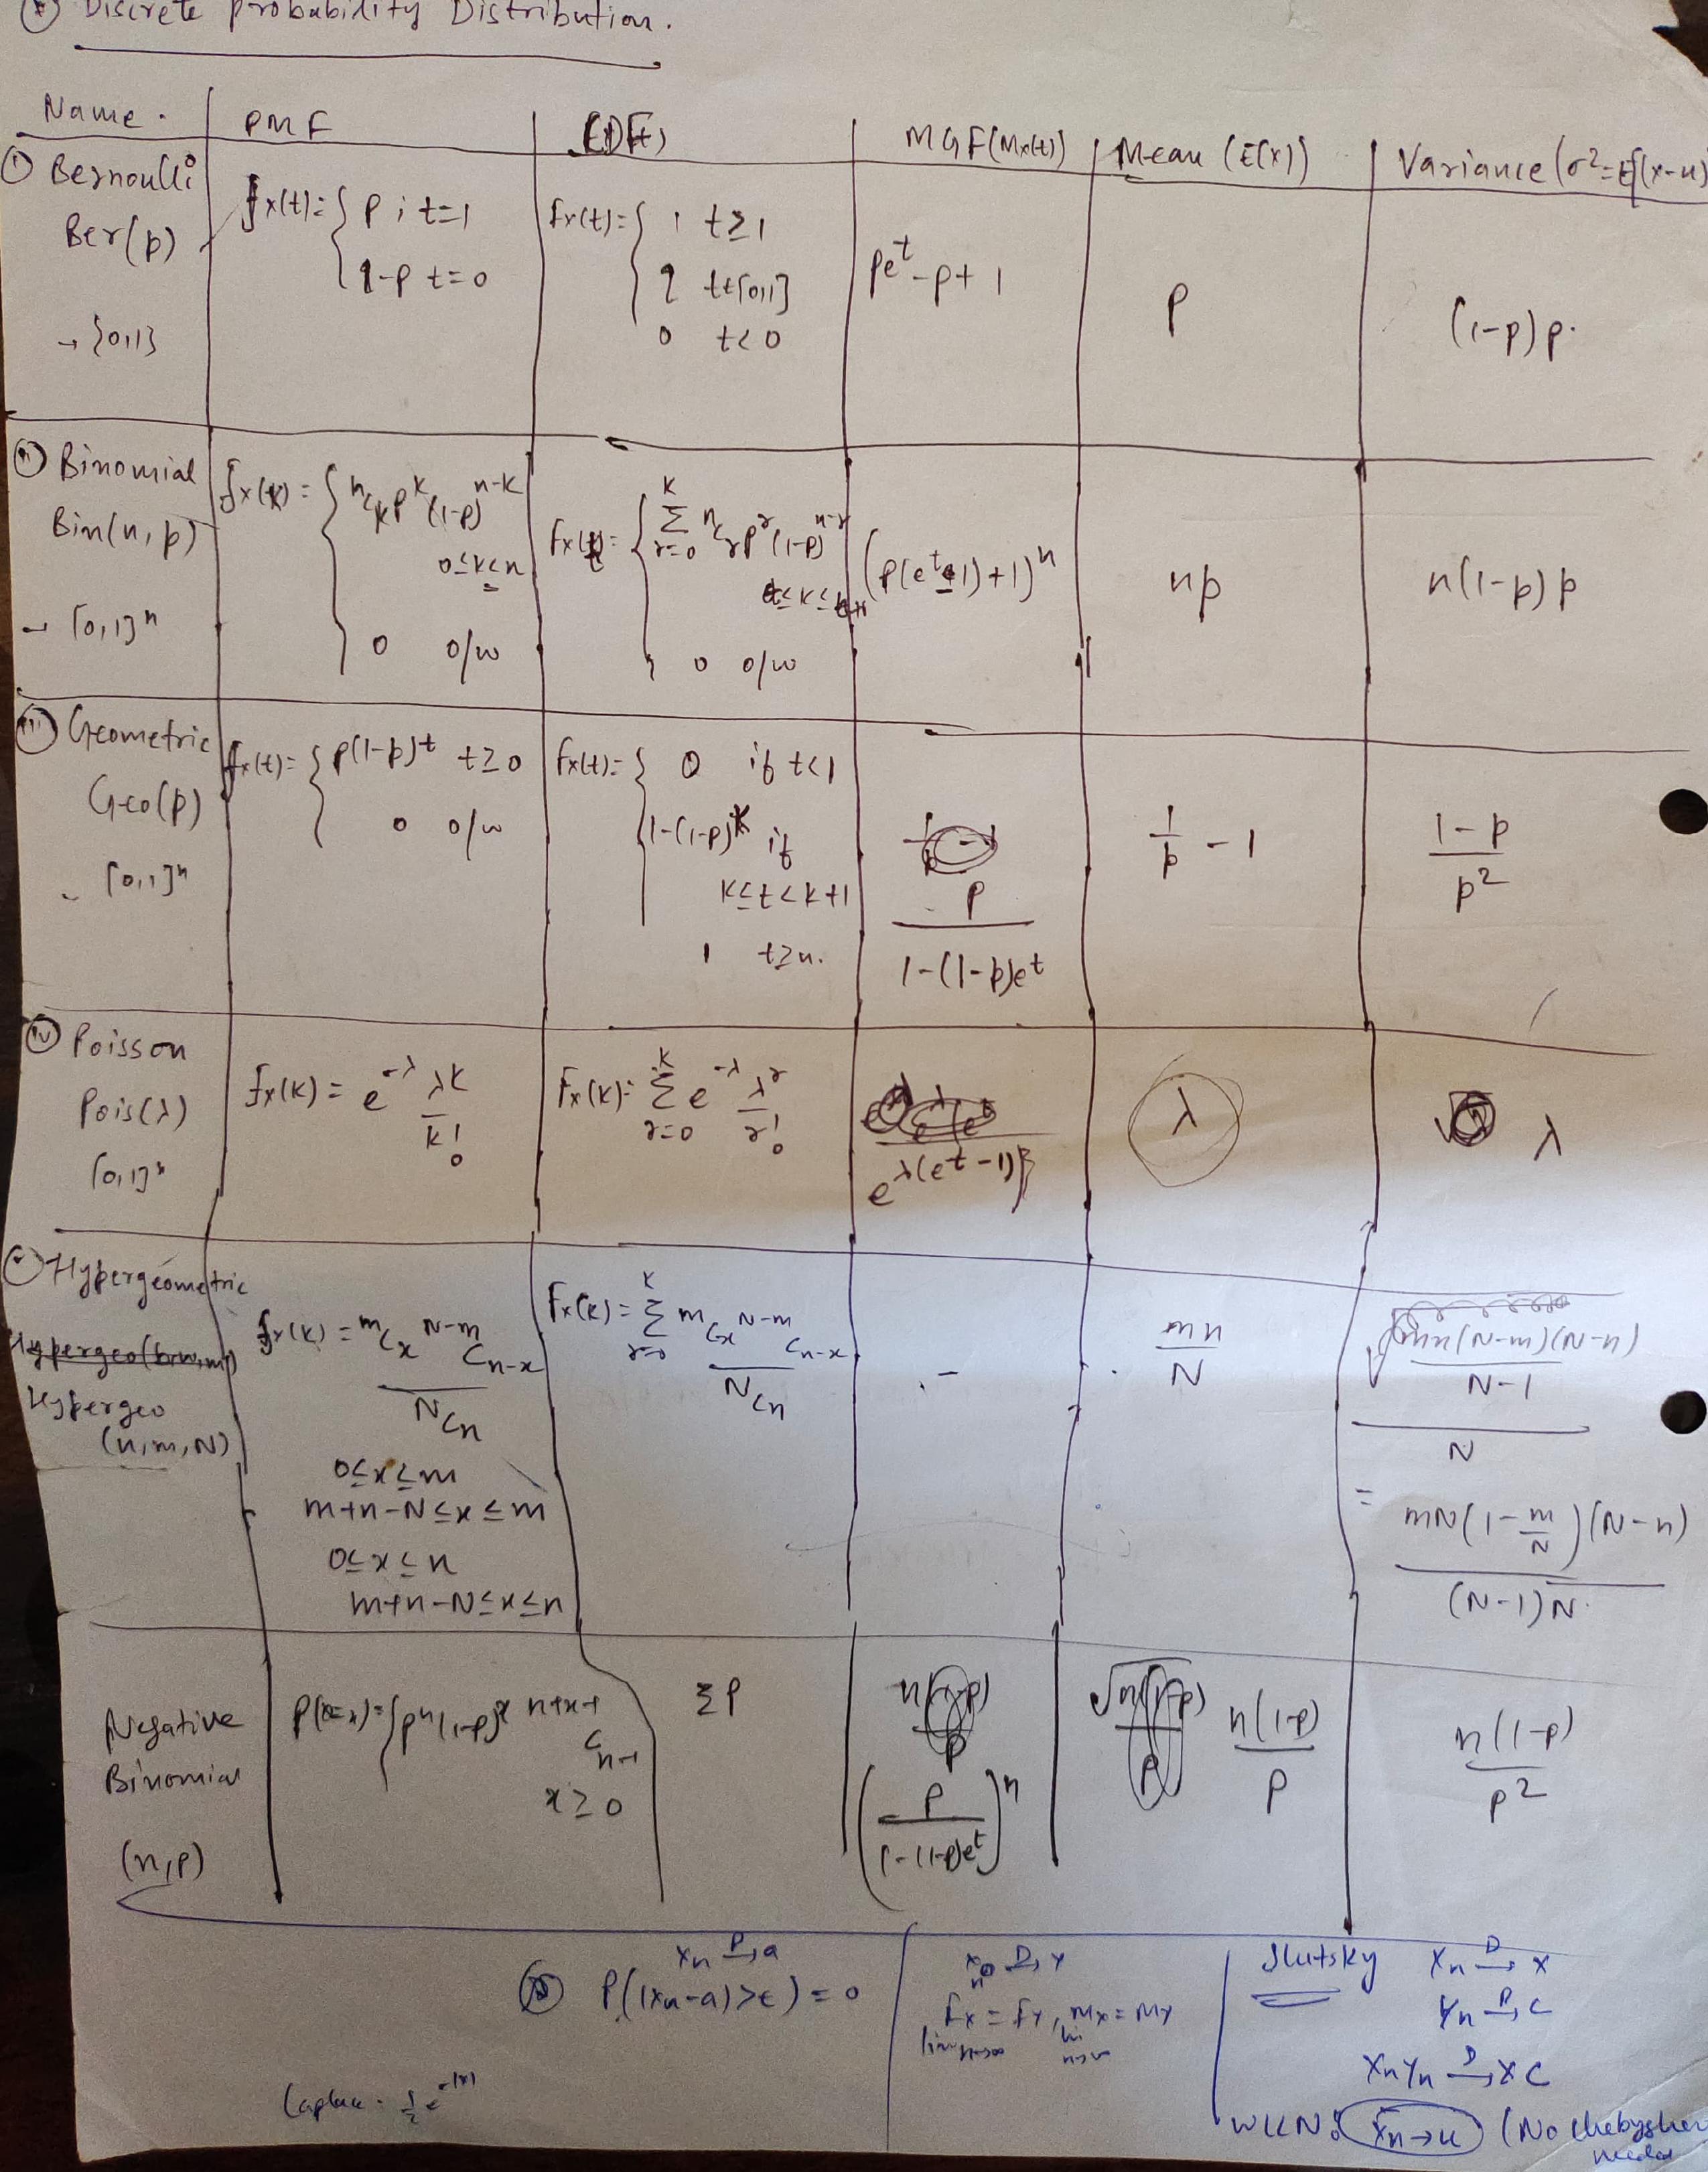 Discrete probability Distribution.
Name. PMF CDF(t) MGF(Mx(t)) Mean (E(X)) Variance (σ²=E[(x-u)
① Bernoulli
Ber(p)
→ {0,1}
fx(t)= { p ; t=1
1-p t=0
Fx(t)= { 1 t≥1
q t∈[0,1]
0 t<0
pe^t-p+1
p
(1-p)p.
(ii) Binomial
Bin(n,p)
→ [0,1]^n
fx(k) = { nCk p^k (1-p)^n-k
0≤k≤n
0 o/w
Fx(t)= { K Σ r=0 nCr p^r (1-p)^n-r
0 o/w
(p(e^t-1)+1)^n
np
n(1-p)p
(iii) Geometric
Geo(p)
[0,1]^n
fx(t)= { p(1-p)^t t≥0
0 o/w
Fx(t)= { 0 if t<1
1-(1-p)^k if
k≤t<k+1
1 t≥n.
p
1-(1-p)e^t
1/p - 1
1-p
p²
(iv) Poisson
Pois(λ)
[0,1]^n
fx(k) = e^-λ λ^k
k!
Fx(k)= K Σ r=0 e^-λ λ^r
r!
e^λ(e^t-1)
λ
λ
(v) Hypergeometric
Hypergeo
(n,m,N)
fx(k) = mCx N-mCn-x
NCn
0≤x≤m
m+n-N≤x≤m
0≤x≤n
m+n-N≤x≤n
Fx(k) = K Σ r=0 mCx N-mCn-x
NCn
-
mn
N
mn(N-m)(N-n)
N-1
N
= mN(1-m/N)(N-n)
(N-1)N.
Negative
Binomial
(n,p)
P(X=x)= { p^n(1-p)^x n+x-1
Cn-1
x≥0
ΣP
n(1-p)
p
(p / 1-(1-p)e^t)^n
n(1-p)
p
n(1-p)
p
n(1-p)
p²
Xn P→ a
P(|Xn-a|>ε) = 0
Xn D→ Y
Fx = FY, Mx = MY
lim n→∞ lim n→∞
Slutsky Xn D→ X
Yn P→ C
XnYn D→ XC
WLLN: X̄n→u (No Chebyshev
needed
Laplace. 1/2 e^-|x|